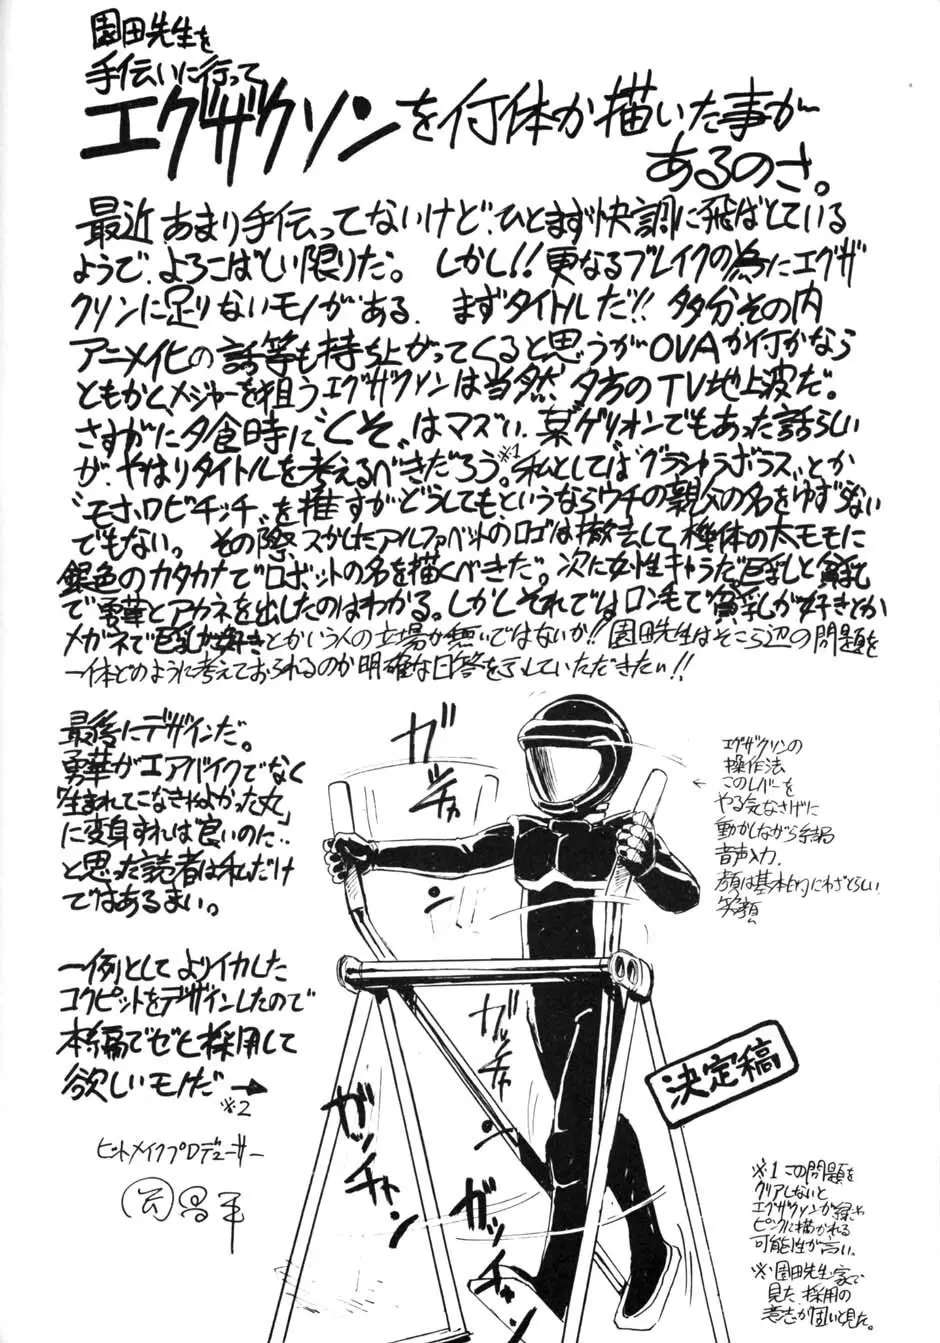 園田先生を
手伝いに行って
エグザクソンを何体か描いた事が
あるのさ。
最近あまり手伝ってないけど、ひとまず快調に飛ばしている
ようで、よろこばしい限りだ。しかし!!更なるブレイクの為にエグザ
クソンに足りないモノがある。まずタイトルだ!!多分その内
アニメイヒの話等も持ち上がってくると思うがOVAか何かなら
ともかく、メジャーを狙うエグザクソンは当然、夕方のTV地上波だ。
さすがに夕食時に"くそ"はマズい。某ゲリオンでもあった話らしい
が、やはりタイトルを考えるべきだろう。※1私としては"グラシャラボラス"とか
"モホロビチッチ"を推すがどうしてもというならウチの親父の名をゆずらない
でもない。その際スかしたアルファベットのロゴは撤去して機体の太モモに
銀色のカタカナでロボットの名を描くべきだ。次に女性キャラだ巨乳と貧乳
で勇華とアカネを出したのはわかる。しかしそれではロン毛で貧乳が好きとか
メガネで巨乳が好きとかいう人の立場が無いではないか!!園田先生はそこら辺の問題を
一体どのように考えておられるのか明確な回答を示していただきたい!!
最後にデザインだ。
勇華がエアバイクでなく
「生まれてこなきゃよかった丸」
に変身すれば良いのに…
と思った読者は私だけ
ではあるまい。
一例として よりイカした
コクピットをデザインしたので
本編でゼヒ採用して
欲しいモノだ→
※2
ヒットメイクプロデューサー
ガ
チャ
ン
ガッチャン
ガッチャン
ガッチャン
エグザクソンの
操作法
←このレバーを
やる気なさげに
動かしながら
音声入力。
顔は基本的にわざとらしい
笑顔
決定稿
※1 この問題を
クリアしないと
エグザクソンが緑や
ピンクに描かれる
可能性が高い。
※園田先生家で
見た。採用の
意志が固いと見た。